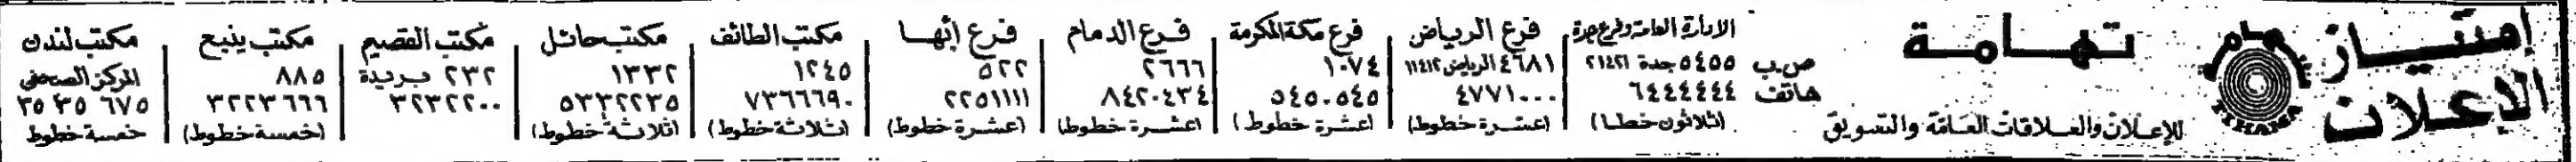 إمتياز الإعلان
تهامة
TIHAMA
للإعلان والعلاقات العامة والتسويق
ص.ب
هاتف
الادارة العامة وفرع جدة
٥٤٥٥ جدة ٢١٤٢١
٦٤٤٤٤٤٤
(ثلاثون خطا)
فرع الرياض
٤٦٨١ الرياض ١١٤١٢
٤٧٧١٠٠٠
(عشرة خطوط)
فرع مكة المكرمة
١٠٧٤
٥٤٥٠٥٤٥
(عشرة خطوط)
فرع الدمام
٢٦٦٦
٨٤٢٠٤٣٤
(عشرة خطوط)
فرع أبها
٥٢٢
٢٢٥١١١١
(عشرة خطوط)
مكتب الطائف
١٢٤٥
٧٣٦٦٦٩٠
(ثلاثة خطوط)
مكتب حائل
١٣٣٢
٥٣٣٢٢٣٥
(ثلاثة خطوط)
مكتب القصيم
٢٣٢ بريدة
٣٢٣٢٢٠٠
مكتب ينبع
٨٨٥
٣٢٢٣٦٦٦
(خمسة خطوط)
مكتب لندن
المركز الصحفي
٦٧٥ ٣٥ ٣٥
خمسة خطوط